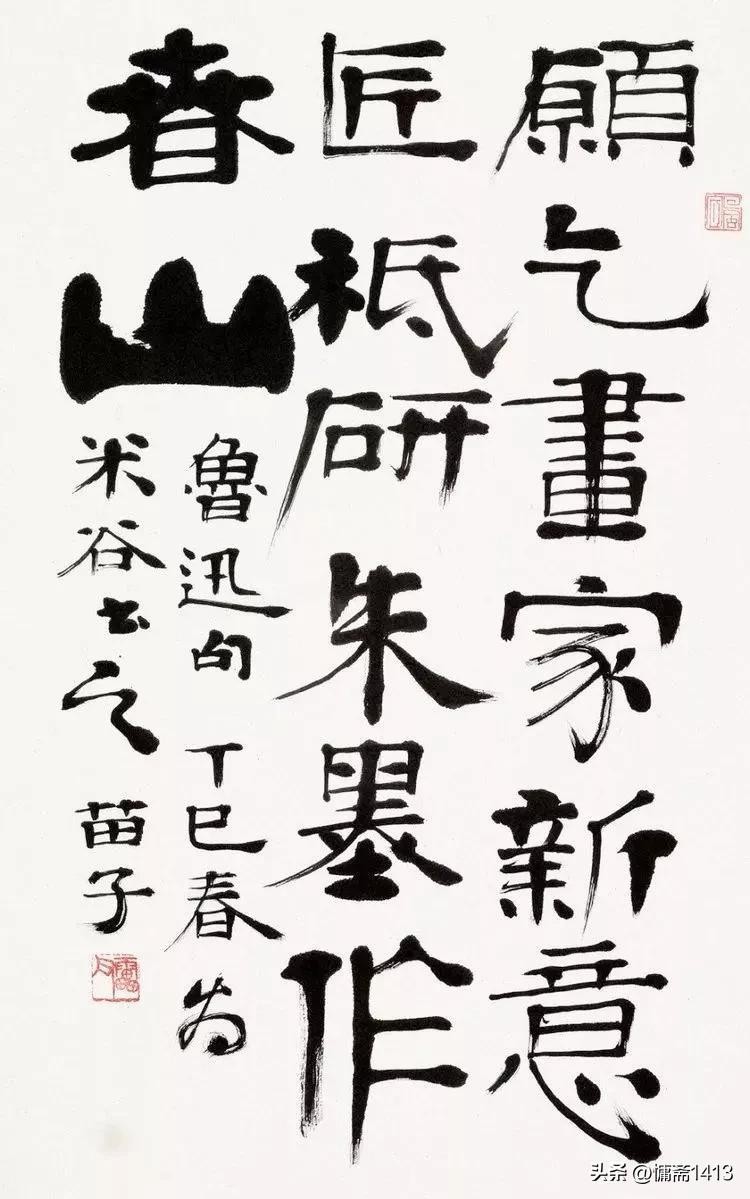 願乞畫家新意
匠祗研朱墨作
春山
魯迅句 丁巳春为
米谷书之 苗子
头条@慵斋1413